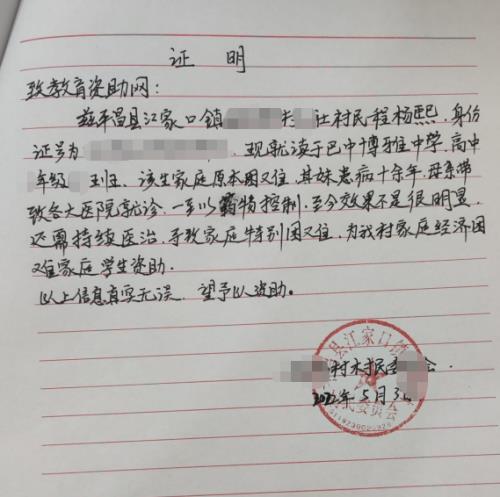 证 明
致教育资助网：
兹平昌县江家口镇 村 社村民程杨熙,身份
证号为 ,现就读于巴中博雅中学,高中
年级 班。该生家庭原本困难,其妹患病十余年,母亲带
致各大医院就诊,一至以药物控制,至今效果不是很明显,
还需持续医治,导致家庭特别困难,为我村家庭经济困
难家庭学生资助.
以上信息真实无误,望予以资助。
县江家口镇
村村民委 会.
2022年5月3